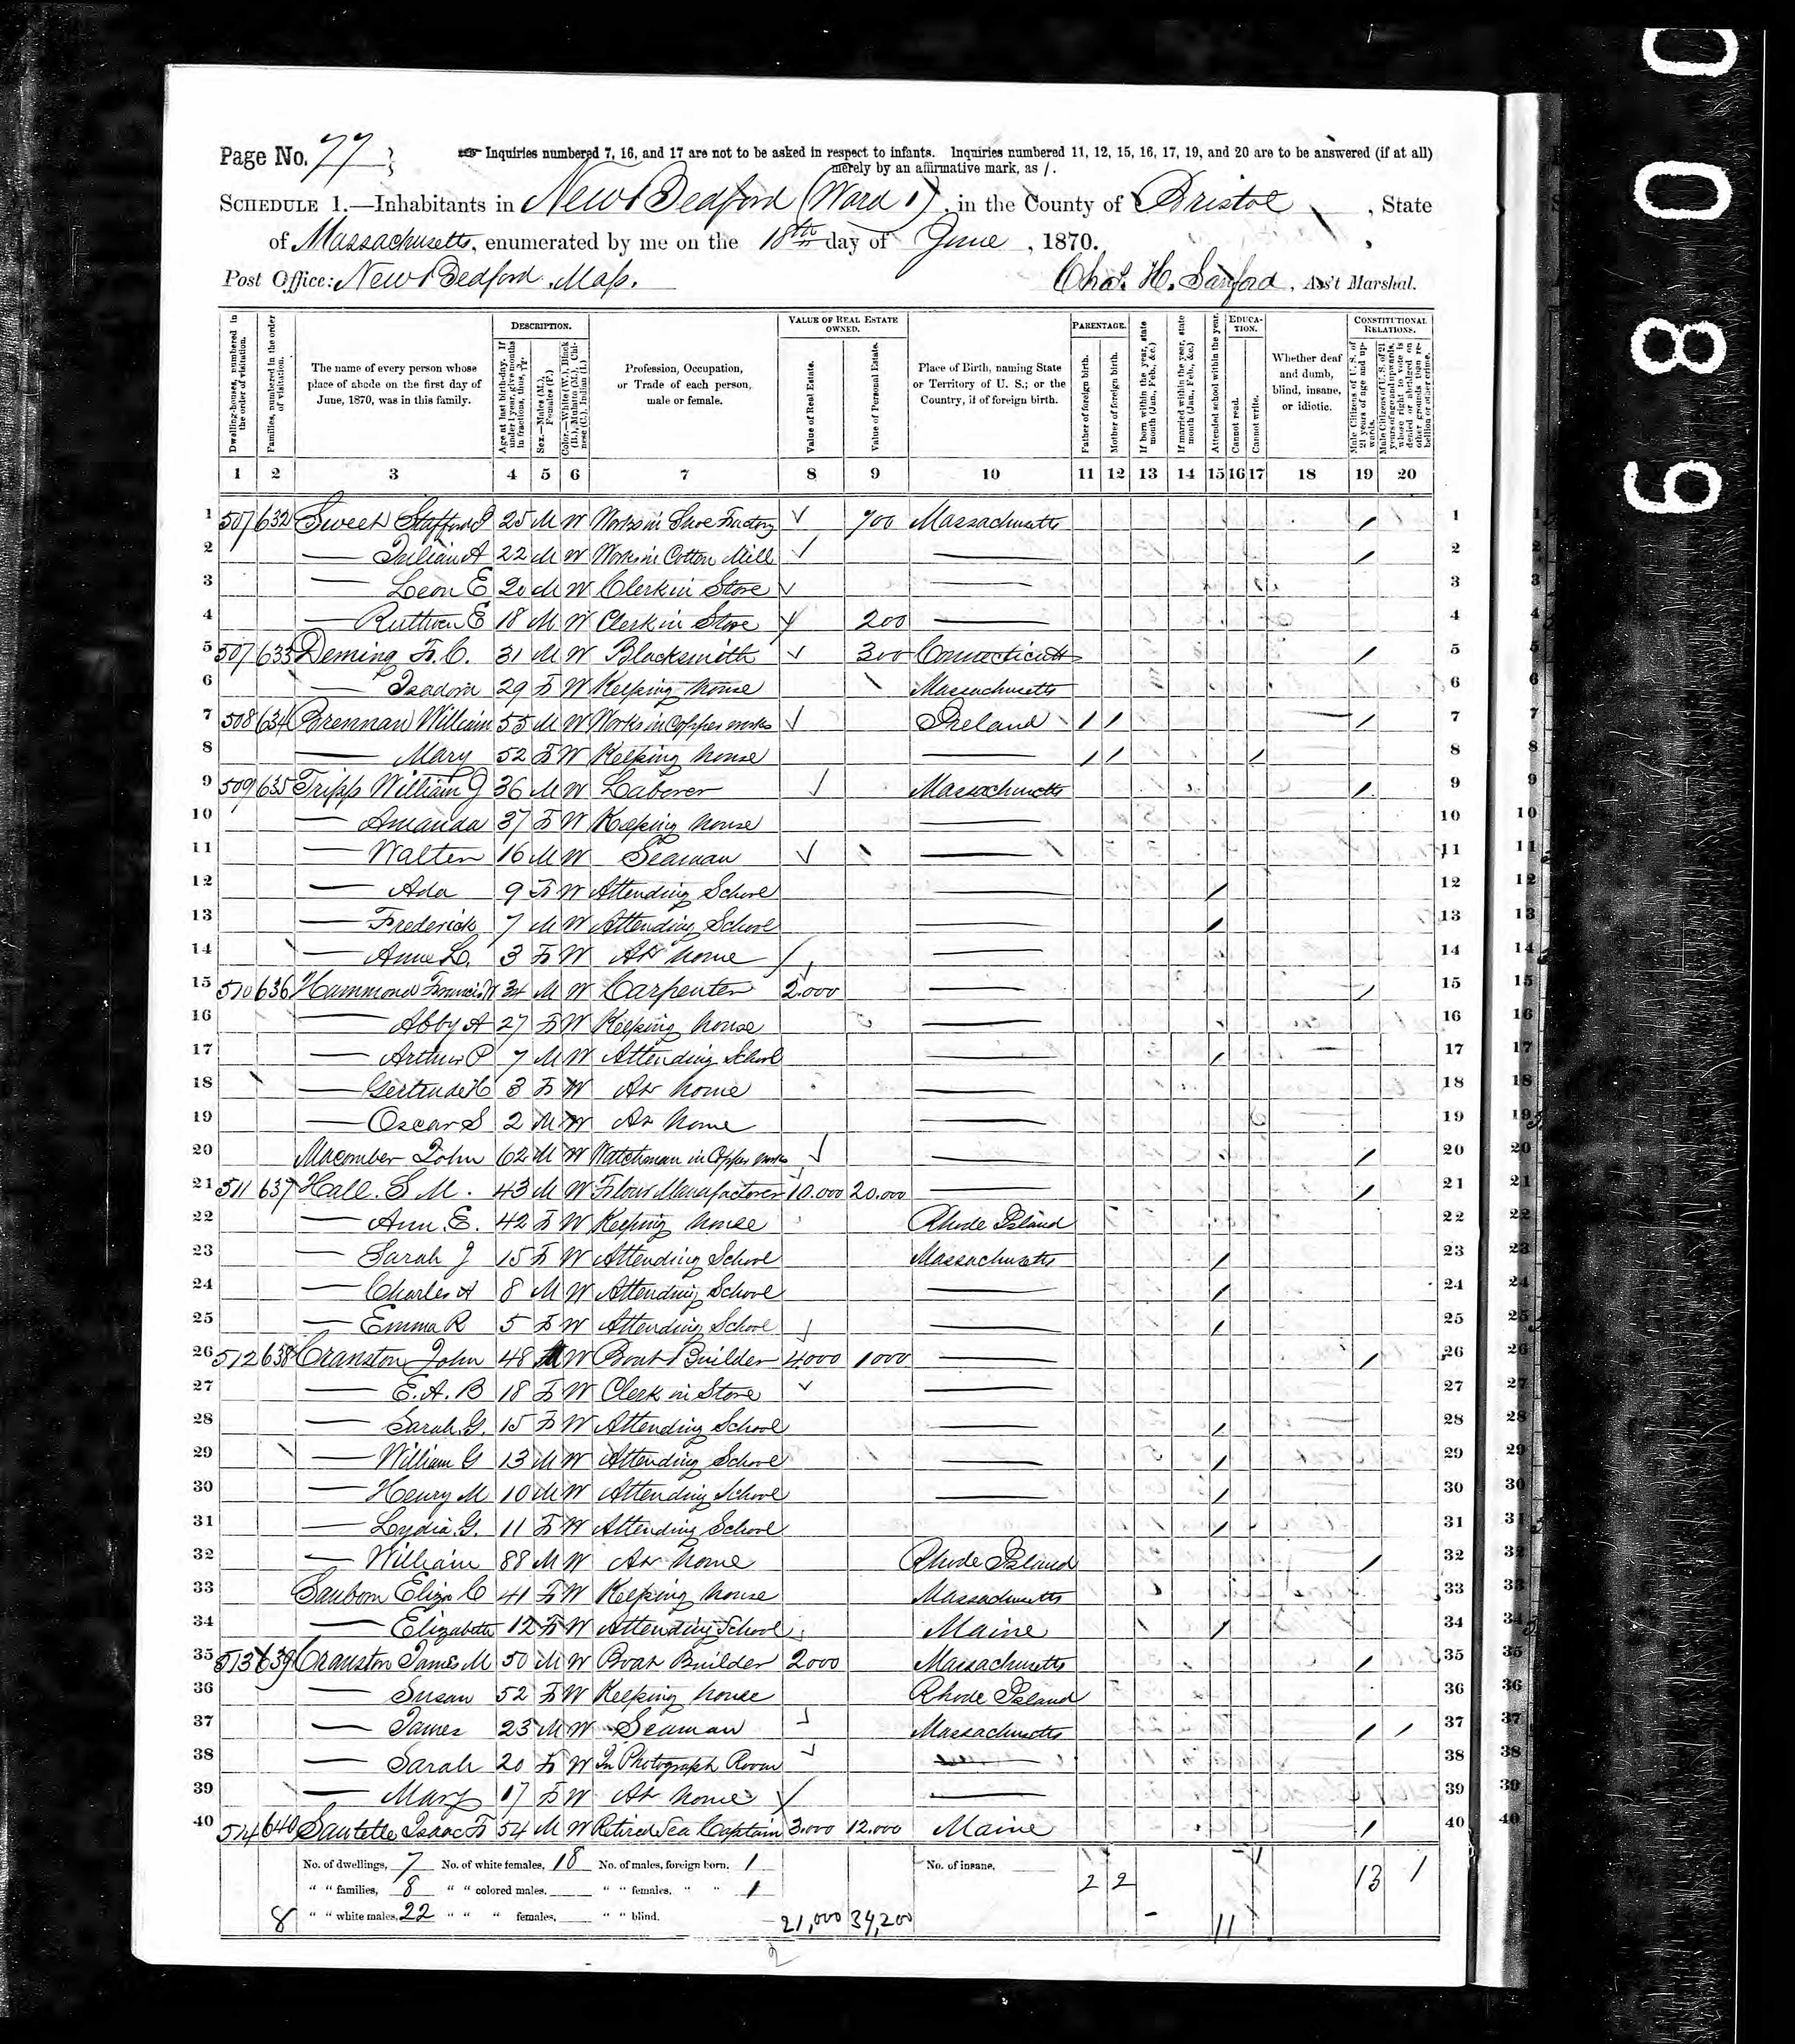 Page No. 77
Inquiries numbered 7, 16, and 17 are not to be asked in respect to infants. Inquiries numbered 11, 12, 15, 16, 17, 19, and 20 are to be answered (if at all)
merely by an affirmative mark, as /.
SCHEDULE 1.—Inhabitants in New Bedford (Ward 1), in the County of Bristol, State
of Massachusetts, enumerated by me on the 18th day of June, 1870.
Post Office: New Bedford Mass. Chas. H. Sanford, Ass't Marshal.
Dwelling-houses, numbered in the order of visitation.
Families, numbered in the order of visitation.
The name of every person whose place of abode on the first day of June, 1870, was in this family.
DESCRIPTION.
Age at last birth-day. If under 1 year, give months in fractions, thus, 3/12.
Sex.—Males (M.), Females (F.)
Color.—White (W.), Black (B.), Mulatto (M.), Chinese (C.), Indian (I.)
Profession, Occupation, or Trade of each person, male or female.
VALUE OF REAL ESTATE OWNED.
Value of Real Estate.
Value of Personal Estate.
Place of Birth, naming State or Territory of U. S.; or the Country, if of foreign birth.
PARENTAGE.
Father of foreign birth.
Mother of foreign birth.
If born within the year, state month (Jan., Feb., &c.)
If married within the year, state month (Jan., Feb., &c.)
Attended school within the year.
EDUCATION.
Cannot read.
Cannot write.
Whether deaf and dumb, blind, insane, or idiotic.
CONSTITUTIONAL RELATIONS.
Male Citizens of U. S. of 21 years of age and upwards.
Male Citizens of U. S. of 21 years of age and upwards, whose right to vote is denied or abridged on other grounds than rebellion or other crime.
1 2 3 4 5 6 7 8 9 10 11 12 13 14 15 16 17 18 19 20
1 507 632 Sweet Stafford J 25 M W Works in Shoe Factory 700 Massachusetts / 1
2 — Julian A 22 M W Works in Cotton Mill — / 2
3 — Leon E 20 M W Clerk in Store — 3
4 — Ruthven E 18 M W Clerk in Store 200 — 4
5 507 633 Deming F. C. 31 M W Blacksmith 300 Connecticut / 5
6 — Isadora 29 F W Keeping house Massachusetts 6
7 508 634 Brennan William 55 M W Works in Copper works Ireland / / / 7
8 — Mary 52 F W Keeping house — / / / 8
9 509 635 Tripp William J 36 M W Laborer Massachusetts / 9
10 — Amanda 37 F W Keeping house — 10
11 — Walter 16 M W Seaman — 11
12 — Ada 9 F W Attending School — / 12
13 — Frederick 7 M W Attending School — / 13
14 — Anna L. 3 F W At home — 14
15 510 636 Hammond Francis W 34 M W Carpenter 2.000 — / 15
16 — Abby A 27 F W Keeping house — 16
17 — Arthur P 7 M W Attending School — / 17
18 — Gertrude H 3 F W At home — 18
19 — Oscar S 2 M W At home — 19
20 Macomber John 62 M W Watchman in Copper works — / 20
21 511 637 Hall. S M. 43 M W Flour Manufacturer 10.000 20.000 — / 21
22 — Ann E. 42 F W Keeping house Rhode Island 22
23 — Sarah J 15 F W Attending School Massachusetts / 23
24 — Charles A 8 M W Attending School — / 24
25 — Emma R 5 F W Attending School — / 25
26 512 638 Cranston John 48 M W Boat Builder 4000 1000 — / 26
27 — E. A. B 18 F W Clerk in Store — 27
28 — Sarah G. 15 F W Attending School — / 28
29 — William G 13 M W Attending School — / 29
30 — Henry M 10 M W Attending School — / 30
31 — Lydia G. 11 F W Attending School / 31
32 — William 88 M W At home Rhode Island / 32
33 Sanborn Eliza C 41 F W Keeping house Massachusetts 33
34 — Elizabeth 12 F W Attending School Maine / 34
35 513 639 Cranston James M 50 M W Boat Builder 2000 Massachusetts / 35
36 — Susan 52 F W Keeping house Rhode Island 36
37 — James 23 M W Seaman Massachusetts / / 37
38 — Sarah 20 F W In Photograph Room — 38
39 — Mary 17 F W At home — 39
40 514 640 Sawtelle Isaac F 54 M W Retired Sea Captain 3.000 12.000 Maine / 40
No. of dwellings, 7 No. of white females, 18 No. of males, foreign born, 1 No. of insane,
" " families, 8 " " colored males, " " females, " " 1 2 2 13 1
8 " " white males, 22 " " " females, " " blind. 21,000 34,200 11